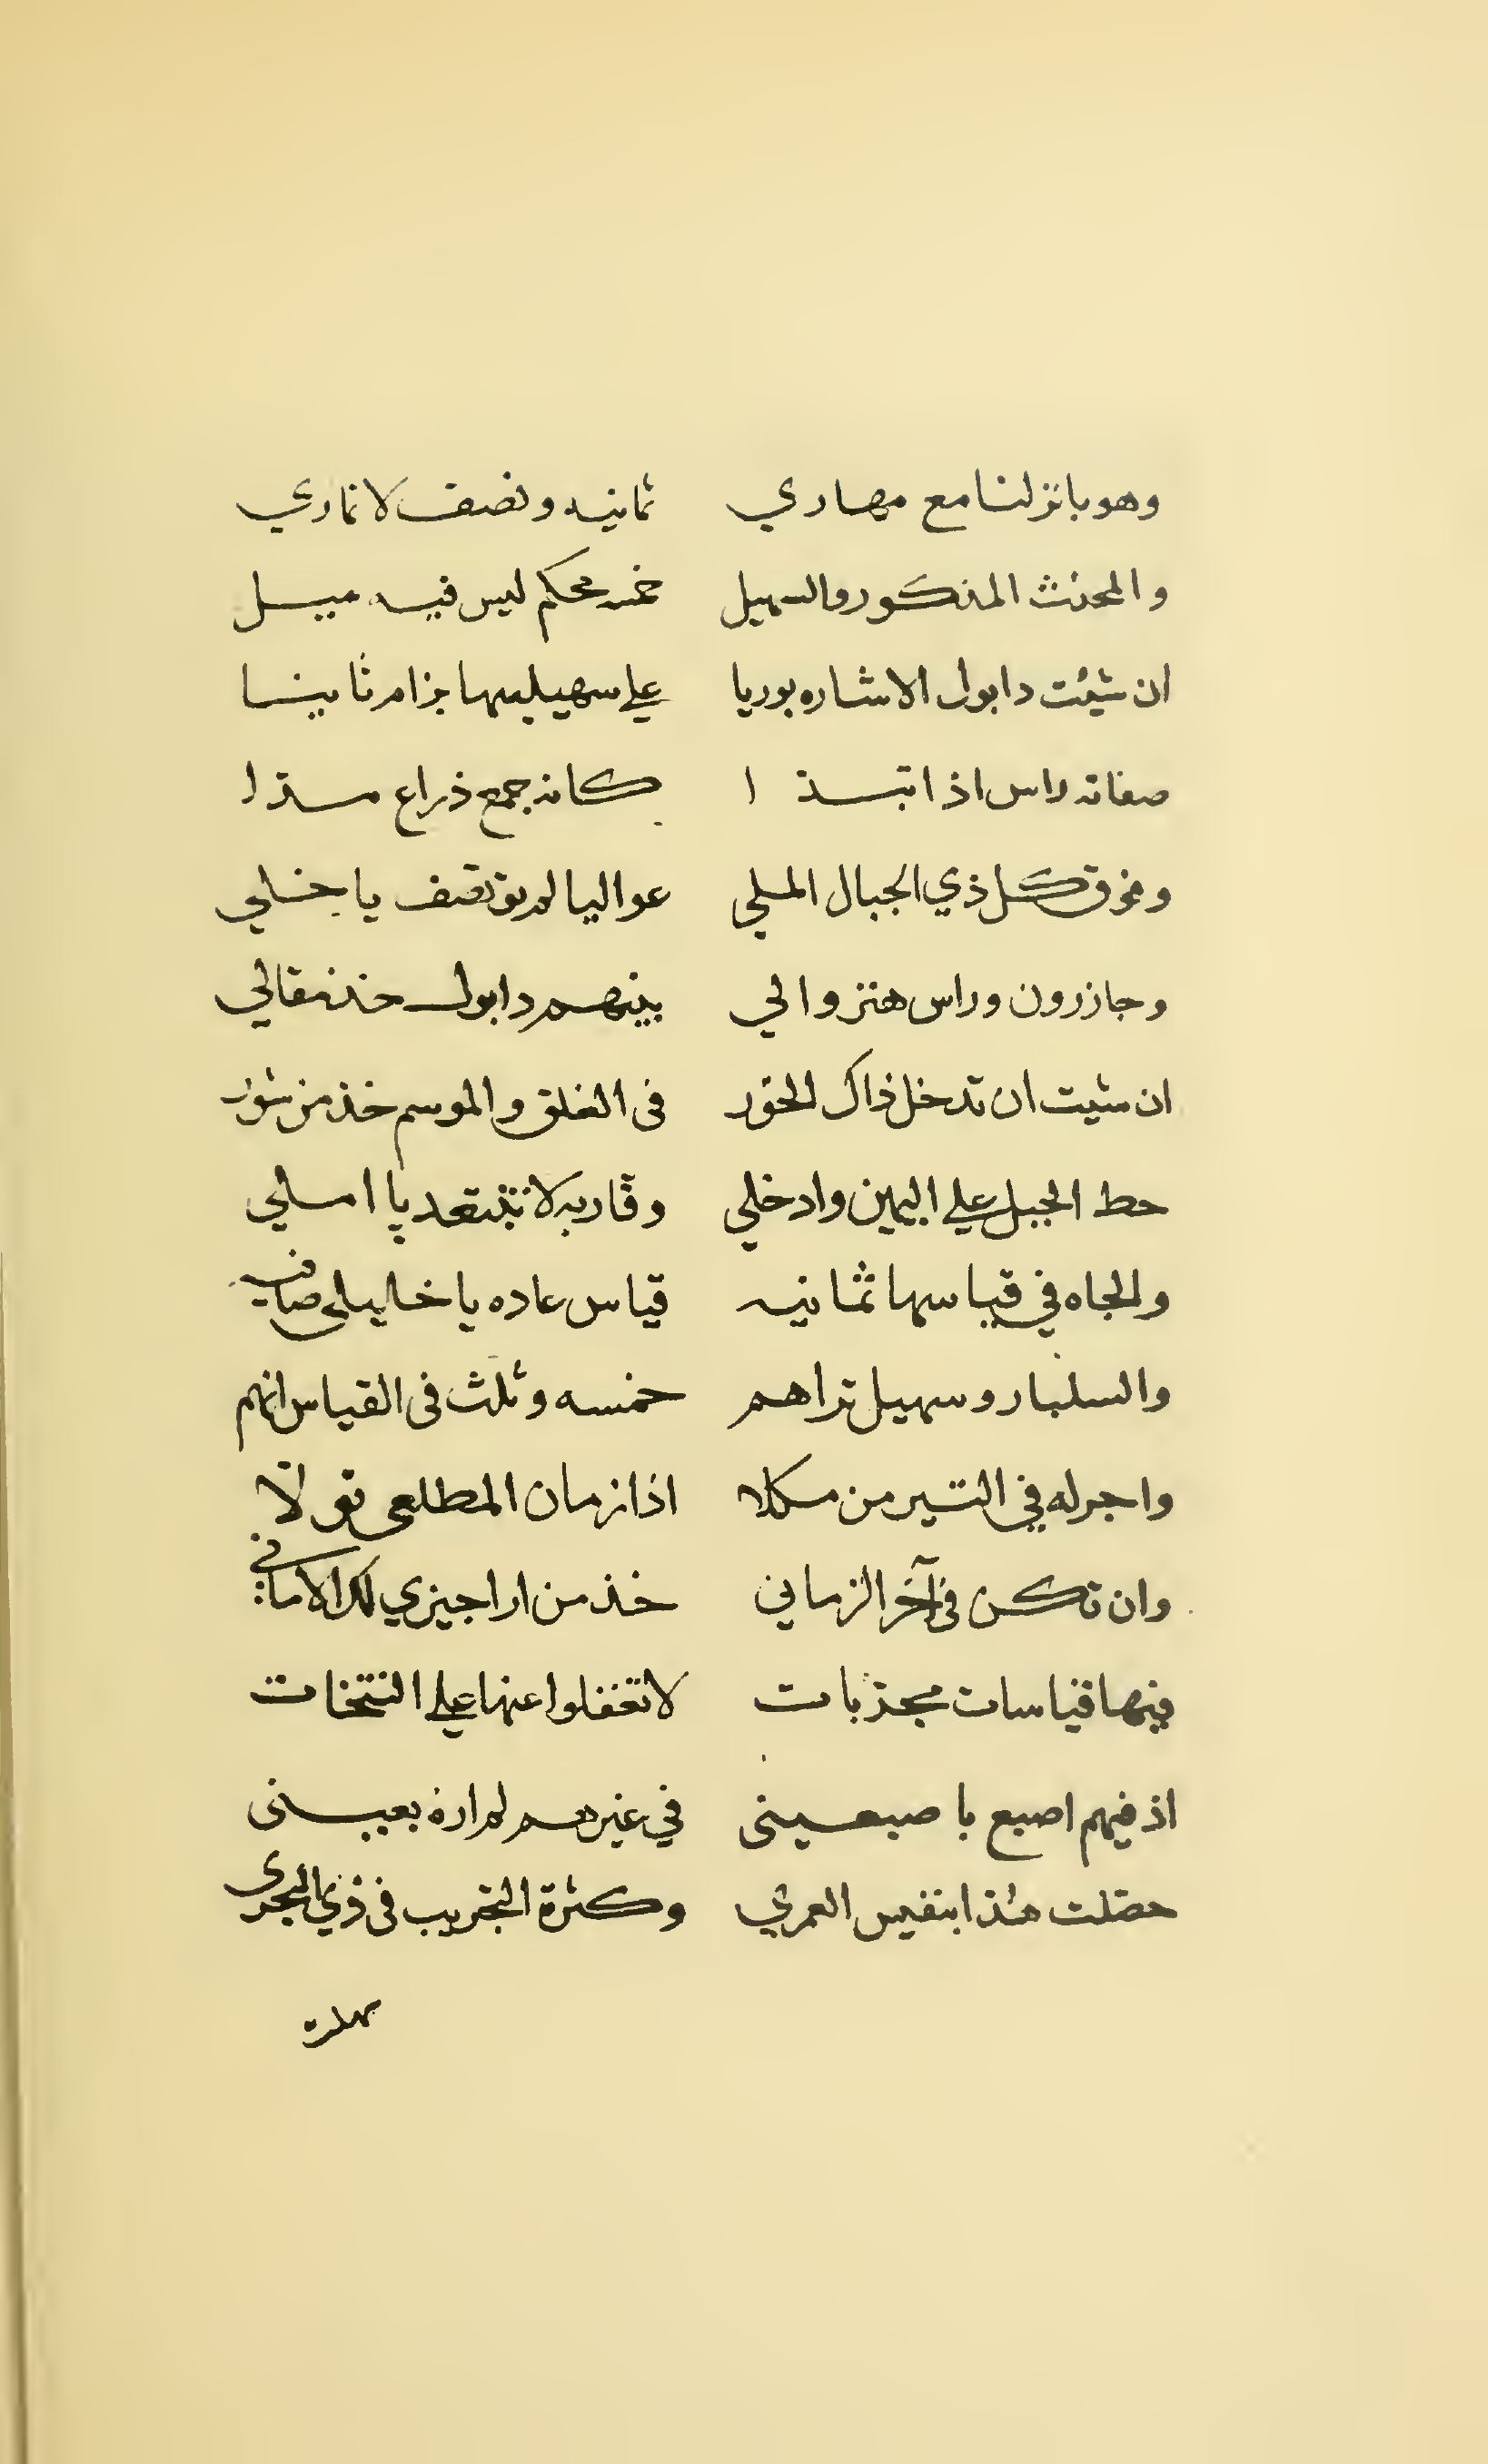 وهو بانزلنا مع مهاري ثمانيه ونصف لا تماري
والمحنث المذكور والسهيل خمسه محكم ليس فيه ميل
ان شئت دابول الاشاره بوريا علي سهيليها جزام ثانيا
صفاته راس اذا تبدا كانه جمع ذراع مسترا
وفوق كل ذي الجبال الملي عواليا لم توتصف يا خلي
وجازرون وراس هنزوالي بينهم دابول خذ مقالي
ان شيت ان تدخل ذاك الخور في الغلق والموسم خذ من شور
حط الجبل علي اليمين وادخلي وقاربه لا تبتعد يا املي
والجاه في قياسها ثمانيه قياس عاده يا خليلي صافيه
والسلبار وسهيل تراهم خمسه وثلث في القياس انهم
واجرله في التير من مكلا اذا زمان المطلعي تولا
وان تكن في آخر الزماني خذ من اراجيزي لك الاماني
فيها قياسات مجربات لا تغفلوا عنها علي النتخات
اذ فيهم اصبع باصبعيني في غيرهم لم اره بعيني
حصلت هذا بنفيس العمري وكثرة التجريب في ذي البحري